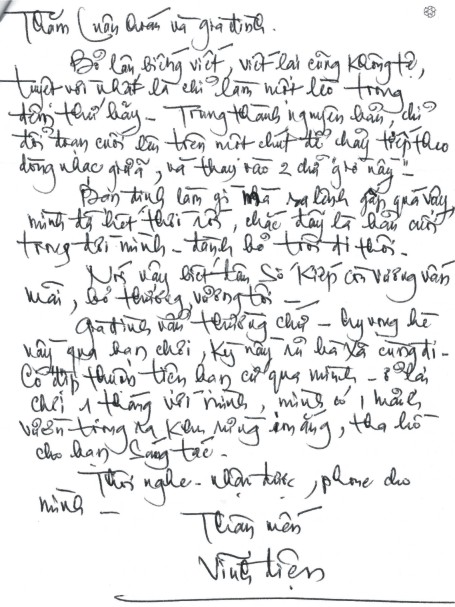 Thăm Luân Hoán và gia đình.
Bỏ lâu, biếng viết, viết lại cũng không tệ,
tuyệt vời nhất là chỉ làm một lèo trong
đêm thứ bẩy - Trung thành nguyên bản, chỉ
đổi đoạn cuối lên trên một chút để chạy tiếp theo
dòng nhạc giữa, và thay vào 2 chữ "giờ này" -
Bạn định làm gì mà ra lệnh gấp quá vậy,
mình đã hết thời rồi, chắc đây là bản cuối
trong đời mình - đành bỏ trôi đi thôi.
Nói vậy biết đâu Số Kiếp còn vương vấn
mãi, bỏ thương, vương tội -
Gia đình vẫn thường chứ - hy vọng hè
này qua bạn chơi, kỳ này rủ bà xã cùng đi -
Có dịp thuận tiện bạn cứ qua mình - ở lại
chơi 1 tháng với mình, mình có 1 mảnh
vườn trông ra khu rừng im ắng, tha hồ
cho bạn sáng tác -
Thôi nghe - nhận được, phone cho
mình -
Thân mến
Vĩnh Điện